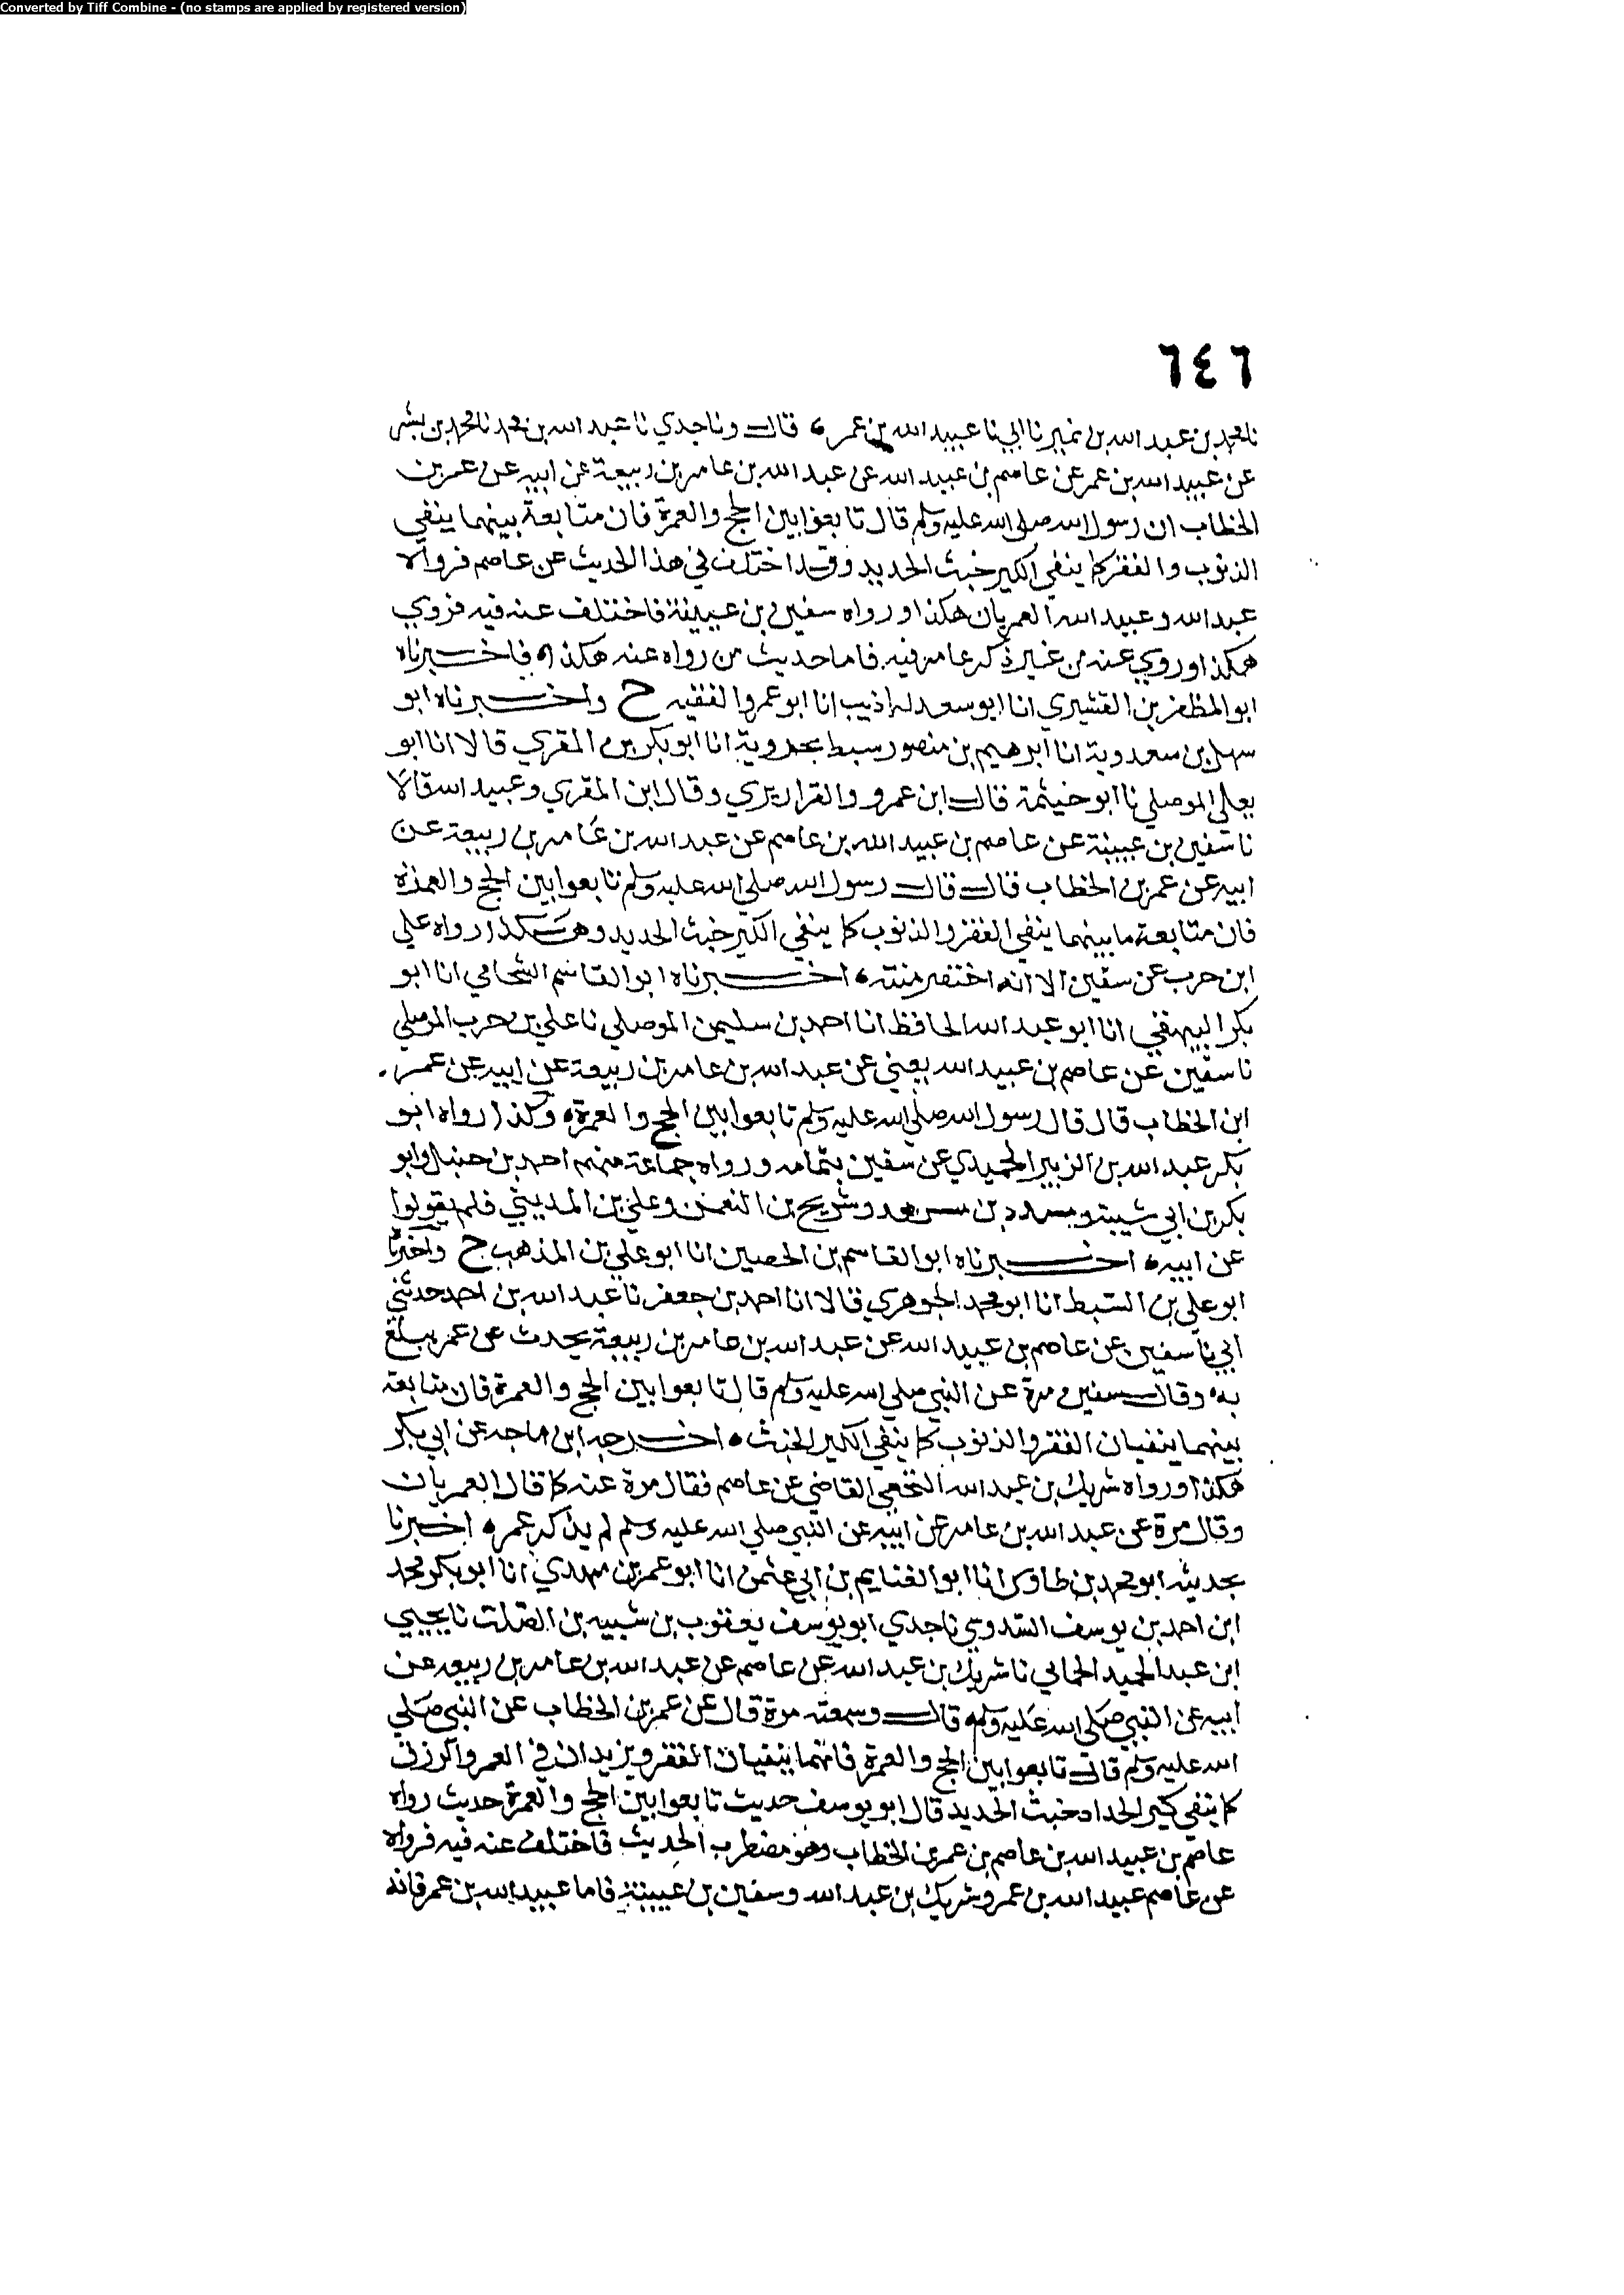 Converted by Tiff Combine - (no stamps are applied by registered version)
٦٤٦
نا محمد بن عبد الله بن نمير نا ابي نا عبيد الله بن عمر ه قال ونا جدي نا عبد الله بن محمد نا محمد بن بشر
عن عبيد الله بن عمر عن عاصم بن عبيد الله عن عبد الله بن عامر بن ربيعة عن ابيه عن عمر بن
الخطاب ان رسول الله صلى الله عليه وسلم قال تابعوا بين الحج والعمرة فان متابعة بينهما ينفي
الذنوب والفقر كما ينفي الكير خبث الحديد وقد اختلف في هذا الحديث عن عاصم فرواه
عبد الله وعبيد الله العمريان هكذا ورواه سفين بن عيينة فاختلف عنه فيه فروي
هكذا وروي عنه من غير ذكر عامر فيه فاما حديث من رواه عنه هكذا ه فاخبرناه
ابو المظفر بن القشيري انا ابو سعد انا ابو عمرو الفقيه ح واخبرناه ابو
سهل بن سعدوية انا ابرهيم بن منصور سبط بحروية انا ابو بكر بن المقري قالا انا ابو
يعلى الموصلي نا ابو خيثمة قال ابن عمرو والقواريري وقال ابن المقري وعبيد الله قالا
نا سفين بن عيينة عن عاصم بن عبيد الله بن عاصم عن عبد الله بن عامر بن ربيعة عن
ابيه عن عمر بن الخطاب قال قال رسول الله صلى الله عليه وسلم تابعوا بين الحج والعمرة
فان متابعة ما بينهما ينفي الفقر والذنوب كما ينفي الكير خبث الحديد وهكذا رواه علي
ابن حرب عن سفين الا انه اختصر متنه ه اخبرناه ابو القاسم الشحامي انا ابو
بكر البيهقي انا ابو عبد الله الحافظ انا احمد بن سليمن الموصلي نا علي بن حرب الموصلي
نا سفين عن عاصم بن عبيد الله يعني عن عبد الله بن عامر بن ربيعة عن ابيه عن عمر
ابن الخطاب قال قال رسول الله صلى الله عليه وسلم تابعوا بين الحج والعمرة ه وكذا رواه ابو
بكر عبد الله بن الزبير الحميدي عن سفين بتمامه ورواه جماعة منهم احمد بن حنبل وابو
بكر بن ابي شيبة ومسدد بن مسرهد وشريح بن النعمن وعلي بن المديني فلم يقولوا
عن ابيه ه اخبرناه ابو القاسم بن الحصين انا ابو علي بن المذهب ح واخبرنا
ابو علي بن السبط انا ابو محمد الجوهري قالا انا احمد بن جعفر نا عبد الله بن احمد حدثني
ابي نا سفين عن عاصم بن عبيد الله عن عبد الله بن عامر بن ربيعة يحدث عن عمر يبلغ
به ه وقال سفين مرة عن النبي صلى الله عليه وسلم قال تابعوا بين الحج والعمرة فان متابعة
بينهما ينفيان الفقر والذنوب كما ينفي الكير الخبث ه اخرجه ابن ماجه عن ابي بكر
هكذا ورواه شريك بن عبد الله النخعي القاضي عن عاصم فقال مرة عنه كما قال العمريان
وقال مرة عن عبد الله بن عامر عن ابيه عن النبي صلى الله عليه وسلم لم يذكر عمر ه اخبرنا
بحديثه ابو محمد بن طاوس انا ابو الغنايم بن ابي عثمن انا ابو عمر بن مهدي انا ابو بكر محمد
ابن احمد بن يوسف السدوسي نا جدي ابو يوسف يعقوب بن شيبه بن الصلت نا يحيى
ابن عبد الحميد الحماني نا شريك بن عبد الله عن عاصم عن عبد الله بن عامر بن ربيعه عن
ابيه عن النبي صلى الله عليه وسلم ه قال وسمعته مرة قال عن عمر بن الخطاب عن النبي صلى
الله عليه وسلم قال تابعوا بين الحج والعمرة فانهما ينفيان الفقر ويزيدان في العمر والرزق
كما ينفي كير الحداد خبث الحديد قال ابو يوسف حديث تابعوا بين الحج والعمرة حديث رواه
عاصم بن عبيد الله بن عاصم بن عمر بن الخطاب وهو مضطرب الحديث فاختلف عنه فيه فرواه
عن عاصم عبيد الله بن عمر وشريك بن عبد الله وسفين بن عيينة فاما عبيد الله بن عمر فانه